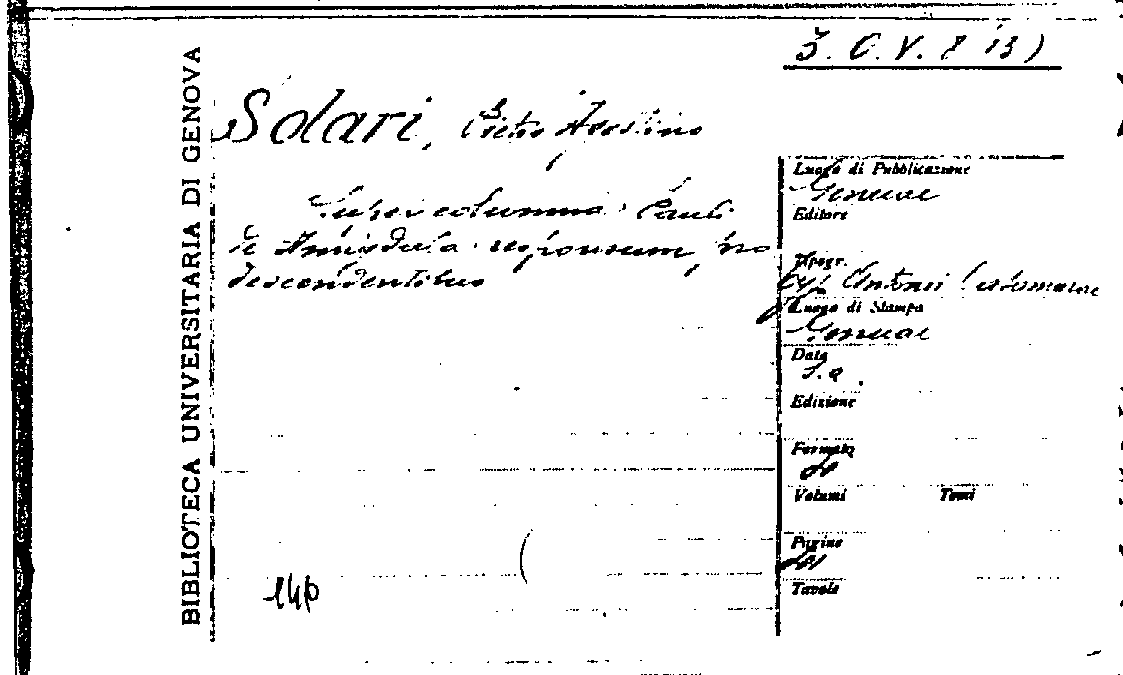 BIBLIOTECA UNIVERSITARIA DI GENOVA
3. O. V. 8 (13)
Solari, Pietro Agostino
Super columna: Pauli
de Amigdala responsum, pro
descendentibus
Luogo di Pubblicazione
Genuae
Editore
Tipogr.
Antonii
Luogo di Stampa
Genuae
Data
s.a.
Edizione
Formato
Volumi Tomi
Pagine
Tavole